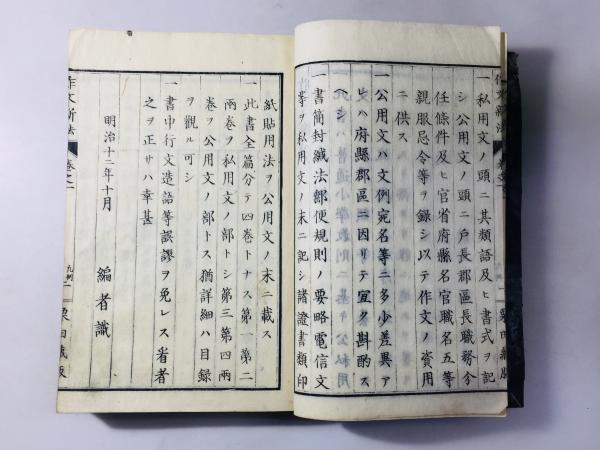 作文新法
一私用文ノ頭ニ其類語及ヒ書式ヲ記
シ公用文ノ頭ニ戸長郡區長職務分
任條件及ヒ官省府縣名官職名五等
親服忌令等ヲ錄シ以テ作文ノ資用
ニ供ス
一公用文ハ文例宛名等ニ多少差異ア
ヒハ府縣郡區ニ因リテ宜ク斟酌ス
一書簡封緘法郵便規則ノ要略電信文
等ヲ私用文ノ末ニ記シ諸證書類印
紙貼用法ヲ公用文ノ末ニ載ス
一此書全篇分テ四卷トナス第一第二
兩卷ヲ私用文ノ部トシ第三第四兩
卷ヲ公用文ノ部トス猶詳細ハ目録
ヲ觀ル可シ
一書中行文造語等誤謬ヲ免レス省者
之ヲ正サハ幸甚
明治十二年十月
編者識
作文新法
卷之一
九例二
栗田藏版